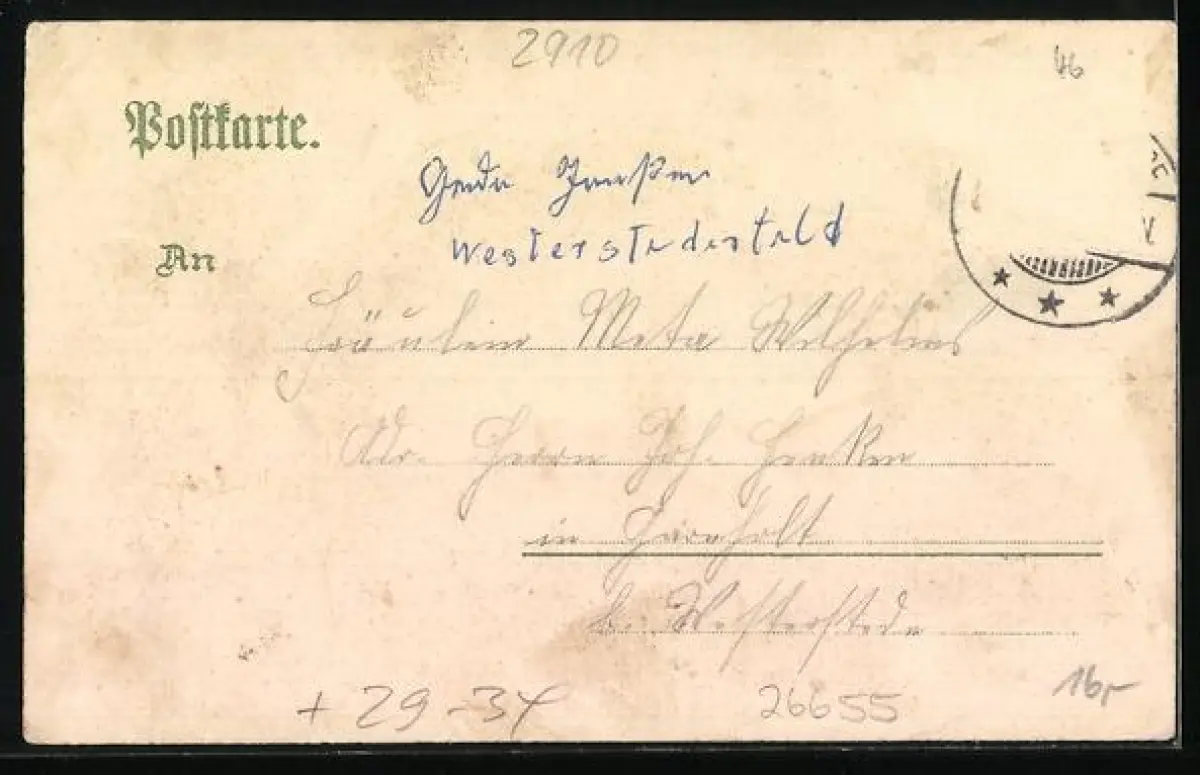 2910
46
Postkarte.
Gerda Janßen
Westerstederfeld
An
Fräulein Meta Wilhelms
Adr. Herrn Joh. Henken
in Garnholt
b. Westerstede
16,-
+ 29-34
26655